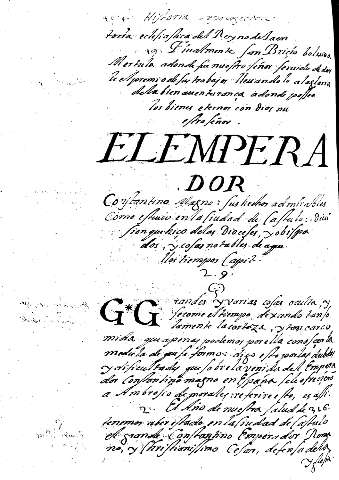 Historia
toria eclesiastica del Reyno de Jaen
Finalmente san Brictio bolvio a
Mertula adonde fue nuestro señor servido de dar
le el premio de sus trabajos llevandolo a la gloria
de la bien aventurança adonde possee
los bienes eternos con Dios nu
estro señor.
EL EMPERA
DOR
Constantino Magno: sus hechos admirables
Como estuvo en la ciudad de Castulo:
y obispa
dos, y cosas notables de aque
llos tiempos Capit.
29.
G*G
randes y varias cosas oculta, y
secome el tiempo, dexando tan so
lamente la corteza, y tan carco
mida que apenas podemos por ella conoscer la
medula de que se formo:
y dificultades que sobre la venida del Empera
dor Constantino magno en España se le ofrecieron
a Ambrosio de morales referire esto, es assi.
2. El Año de nuestra salud de 316
tenemos aver estado en la ciudad de Castulo
el grande Constantino Emperador Roma
no, y Christianissimo Cesar, defensa de la
yglesia